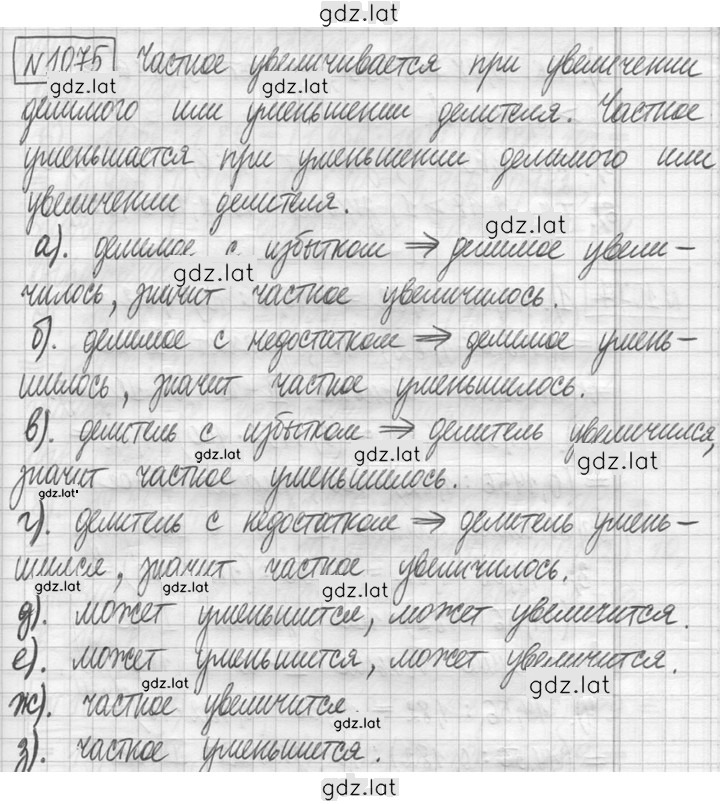 gdz.lat
№1075 Частное увеличивается при увеличении
gdz.lat gdz.lat
делимого или уменьшении делителя. Частное
уменьшается при уменьшении делимого или
увеличении делителя.
gdz.lat
а). делимое с избытком ⇒ делимое увели-
gdz.lat
чилось, значит частное увеличилось.
б). делимое с недостатком ⇒ делимое умень-
шилось, значит частное уменьшилось.
в). делитель с избытком ⇒ делитель увеличился,
gdz.lat gdz.lat gdz.lat
значит частное уменьшилось.
gdz.lat
г). делитель с недостатком ⇒ делитель умень-
шился, значит частное увеличилось.
gdz.lat gdz.lat
д). может уменьшится, может увеличится.
е). может уменьшится, может увеличится.
gdz.lat gdz.lat
ж). частное увеличится
gdz.lat
з). частное уменьшется.
gdz.lat